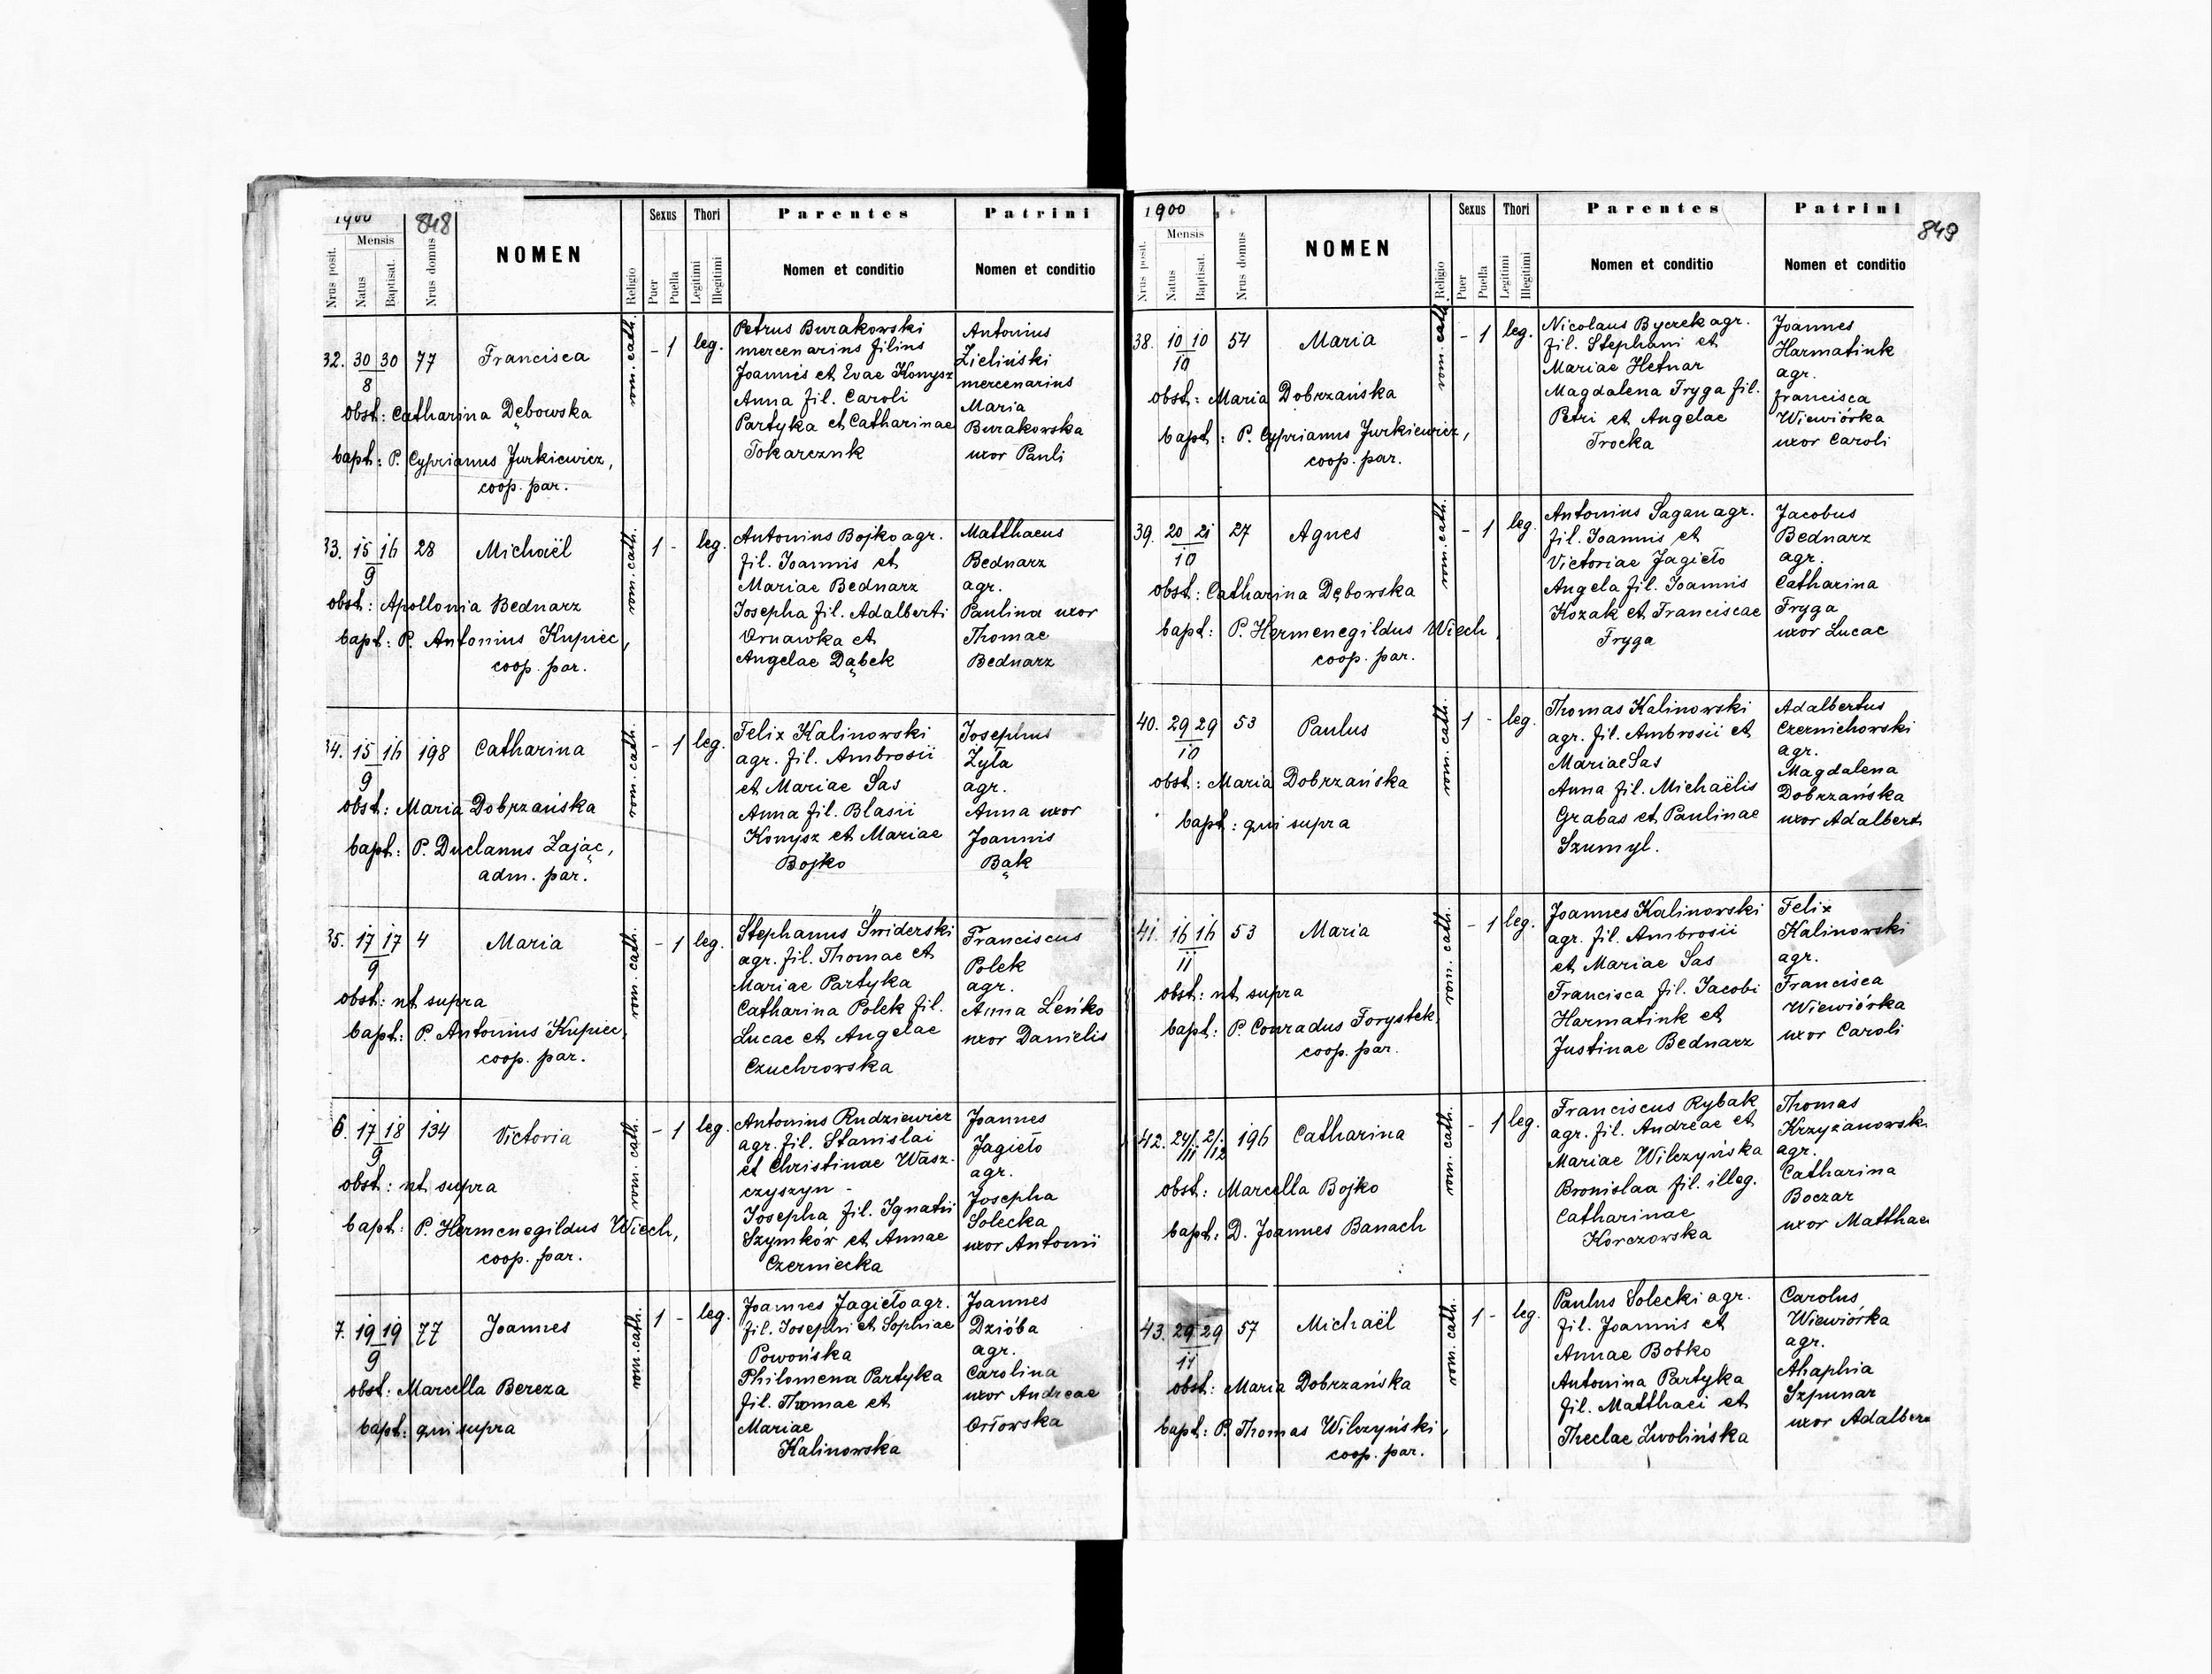 1900 848
Nrus posit. Mensis Natus Baptisat. Nrus domus NOMEN Religio Sexus Puer Puella Thori Legitimi Illegitimi Parentes Nomen et conditio Patrini Nomen et conditio
32. 30 30 77 Francisca rom. cath. - 1 leg.
8
obst: Catharina Dębowska
bapt: P. Cyprianus Jurkiewicz,
coop. par.
Petrus Burakowski
mercenarius filius
Joannis et Evae Konysz
Anna fil. Caroli
Partyka et Catharinae
Tokarczuk
Antonius
Zieliński
mercenarius
Maria
Burakowska
uxor Pauli
33. 15 16 28 Michaël rom. cath. 1 - leg.
9
obst: Apollonia Bednarz
bapt: P. Antonius Kupiec,
coop. par.
Antonius Bojko agr.
fil. Joannis et
Mariae Bednarz
Josepha fil. Adalberti
Ornawka et
Angelae Dąbek
Matthaeus
Bednarz
agr.
Paulina uxor
Thomae
Bednarz
34. 15 16 198 Catharina rom. cath. - 1 leg.
9
obst: Maria Dobrzańska
bapt: P. Duclanus Zając,
adm. par.
Felix Kalinowski
agr. fil. Ambrosii
et Mariae Sas
Anna fil. Blasii
Konysz et Mariae
Bojko
Josephus
Żyła
agr.
Anna uxor
Joannis
Bąk
35. 17 17 4 Maria rom. cath. - 1 leg.
9
obst: ut supra
bapt: P. Antonius Kupiec,
coop. par.
Stephanus Świderski
agr. fil. Thomae et
Mariae Partyka
Catharina Polek fil.
Lucae et Angelae
Czuchrowska
Franciscus
Polek
agr.
Anna Leńko
uxor Danielis
6. 17 18 134 Victoria rom. cath. - 1 leg.
9
obst: ut supra
bapt: P. Hermenegildus Wiech,
coop. par.
Antonius Rudziewicz
agr. fil. Stanislai
et Christinae Wasz-
czyszyn -
Josepha fil. Ignatii
Szymków et Annae
Czerniecka
Joannes
Jagieło
agr.
Josepha
Solecka
uxor Antonii
7. 19 19 77 Joannes rom. cath. 1 - leg.
9
obst: Marcella Bereza
bapt: qui supra
Joannes Jagieło agr.
fil. Josephi et Sophiae
Powońska
Philomena Partyka
fil. Thomae et
Mariae
Kalinowska
Joannes
Dzióba
agr.
Carolina
uxor Andreae
Orłowska
1900 849
Nrus posit. Mensis Natus Baptisat. Nrus domus NOMEN Religio Sexus Puer Puella Thori Legitimi Illegitimi Parentes Nomen et conditio Patrini Nomen et conditio
38. 10 10 54 Maria rom. cath. - 1 leg.
10
obst: Maria Dobrzańska
bapt: P. Cyprianus Jurkiewicz,
coop. par.
Nicolaus Byczek agr.
fil. Stephani et
Mariae Hetnar
Magdalena Fryga fil.
Petri et Angelae
Trocka
Joannes
Harmatiuk
agr.
Francisca
Wiewiórka
uxor Caroli
39. 20 21 27 Agnes rom. cath. - 1 leg.
10
obst: Catharina Dębowska
bapt: P. Hermenegildus Wiech,
coop. par.
Antonius Sagan agr.
fil. Joannis et
Victoriae Jagieło
Angela fil. Joannis
Kozak et Franciscae
Fryga
Jacobus
Bednarz
agr.
Catharina
Fryga
uxor Lucae
40. 29 29 53 Paulus rom. cath. 1 - leg.
10
obst: Maria Dobrzańska
bapt: qui supra
Thomas Kalinowski
agr. fil. Ambrosii et
Mariae Sas
Anna fil. Michaëlis
Grabas et Paulinae
Szumyl.
Adalbertus
Czernichowski
agr.
Magdalena
Dobrzańska
uxor Adalberti
41. 16 16 53 Maria rom. cath. - 1 leg.
11
obst: ut supra
bapt: P. Conradus Forystek,
coop. par.
Joannes Kalinowski
agr. fil. Ambrosii
et Mariae Sas
Francisca fil. Jacobi
Harmatiuk et
Justinae Bednarz
Felix
Kalinowski
agr.
Francisca
Wiewiórka
uxor Caroli
42. 24/11 2/12 196 Catharina rom. cath. - 1 leg.
obst: Marcella Bojko
bapt: D. Joannes Banach
Franciscus Rybak
agr. fil. Andreae et
Mariae Wilczyńska
Bronislaa fil. illeg.
Catharinae
Korczowska
Thomas
Krzyżanowsk
agr.
Catharina
Boczar
uxor Matthae
43. 29 29 57 Michaël rom. cath. 1 - leg.
11
obst: Maria Dobrzańska
bapt: P. Thomas Wilczyński,
coop. par.
Paulus Solecki agr.
fil. Joannis et
Annae Bobko
Antonina Partyka
fil. Matthaei et
Theclae Zwolińska
Carolus
Wiewiórka
agr.
Ahaphia
Szpunar
uxor Adalber